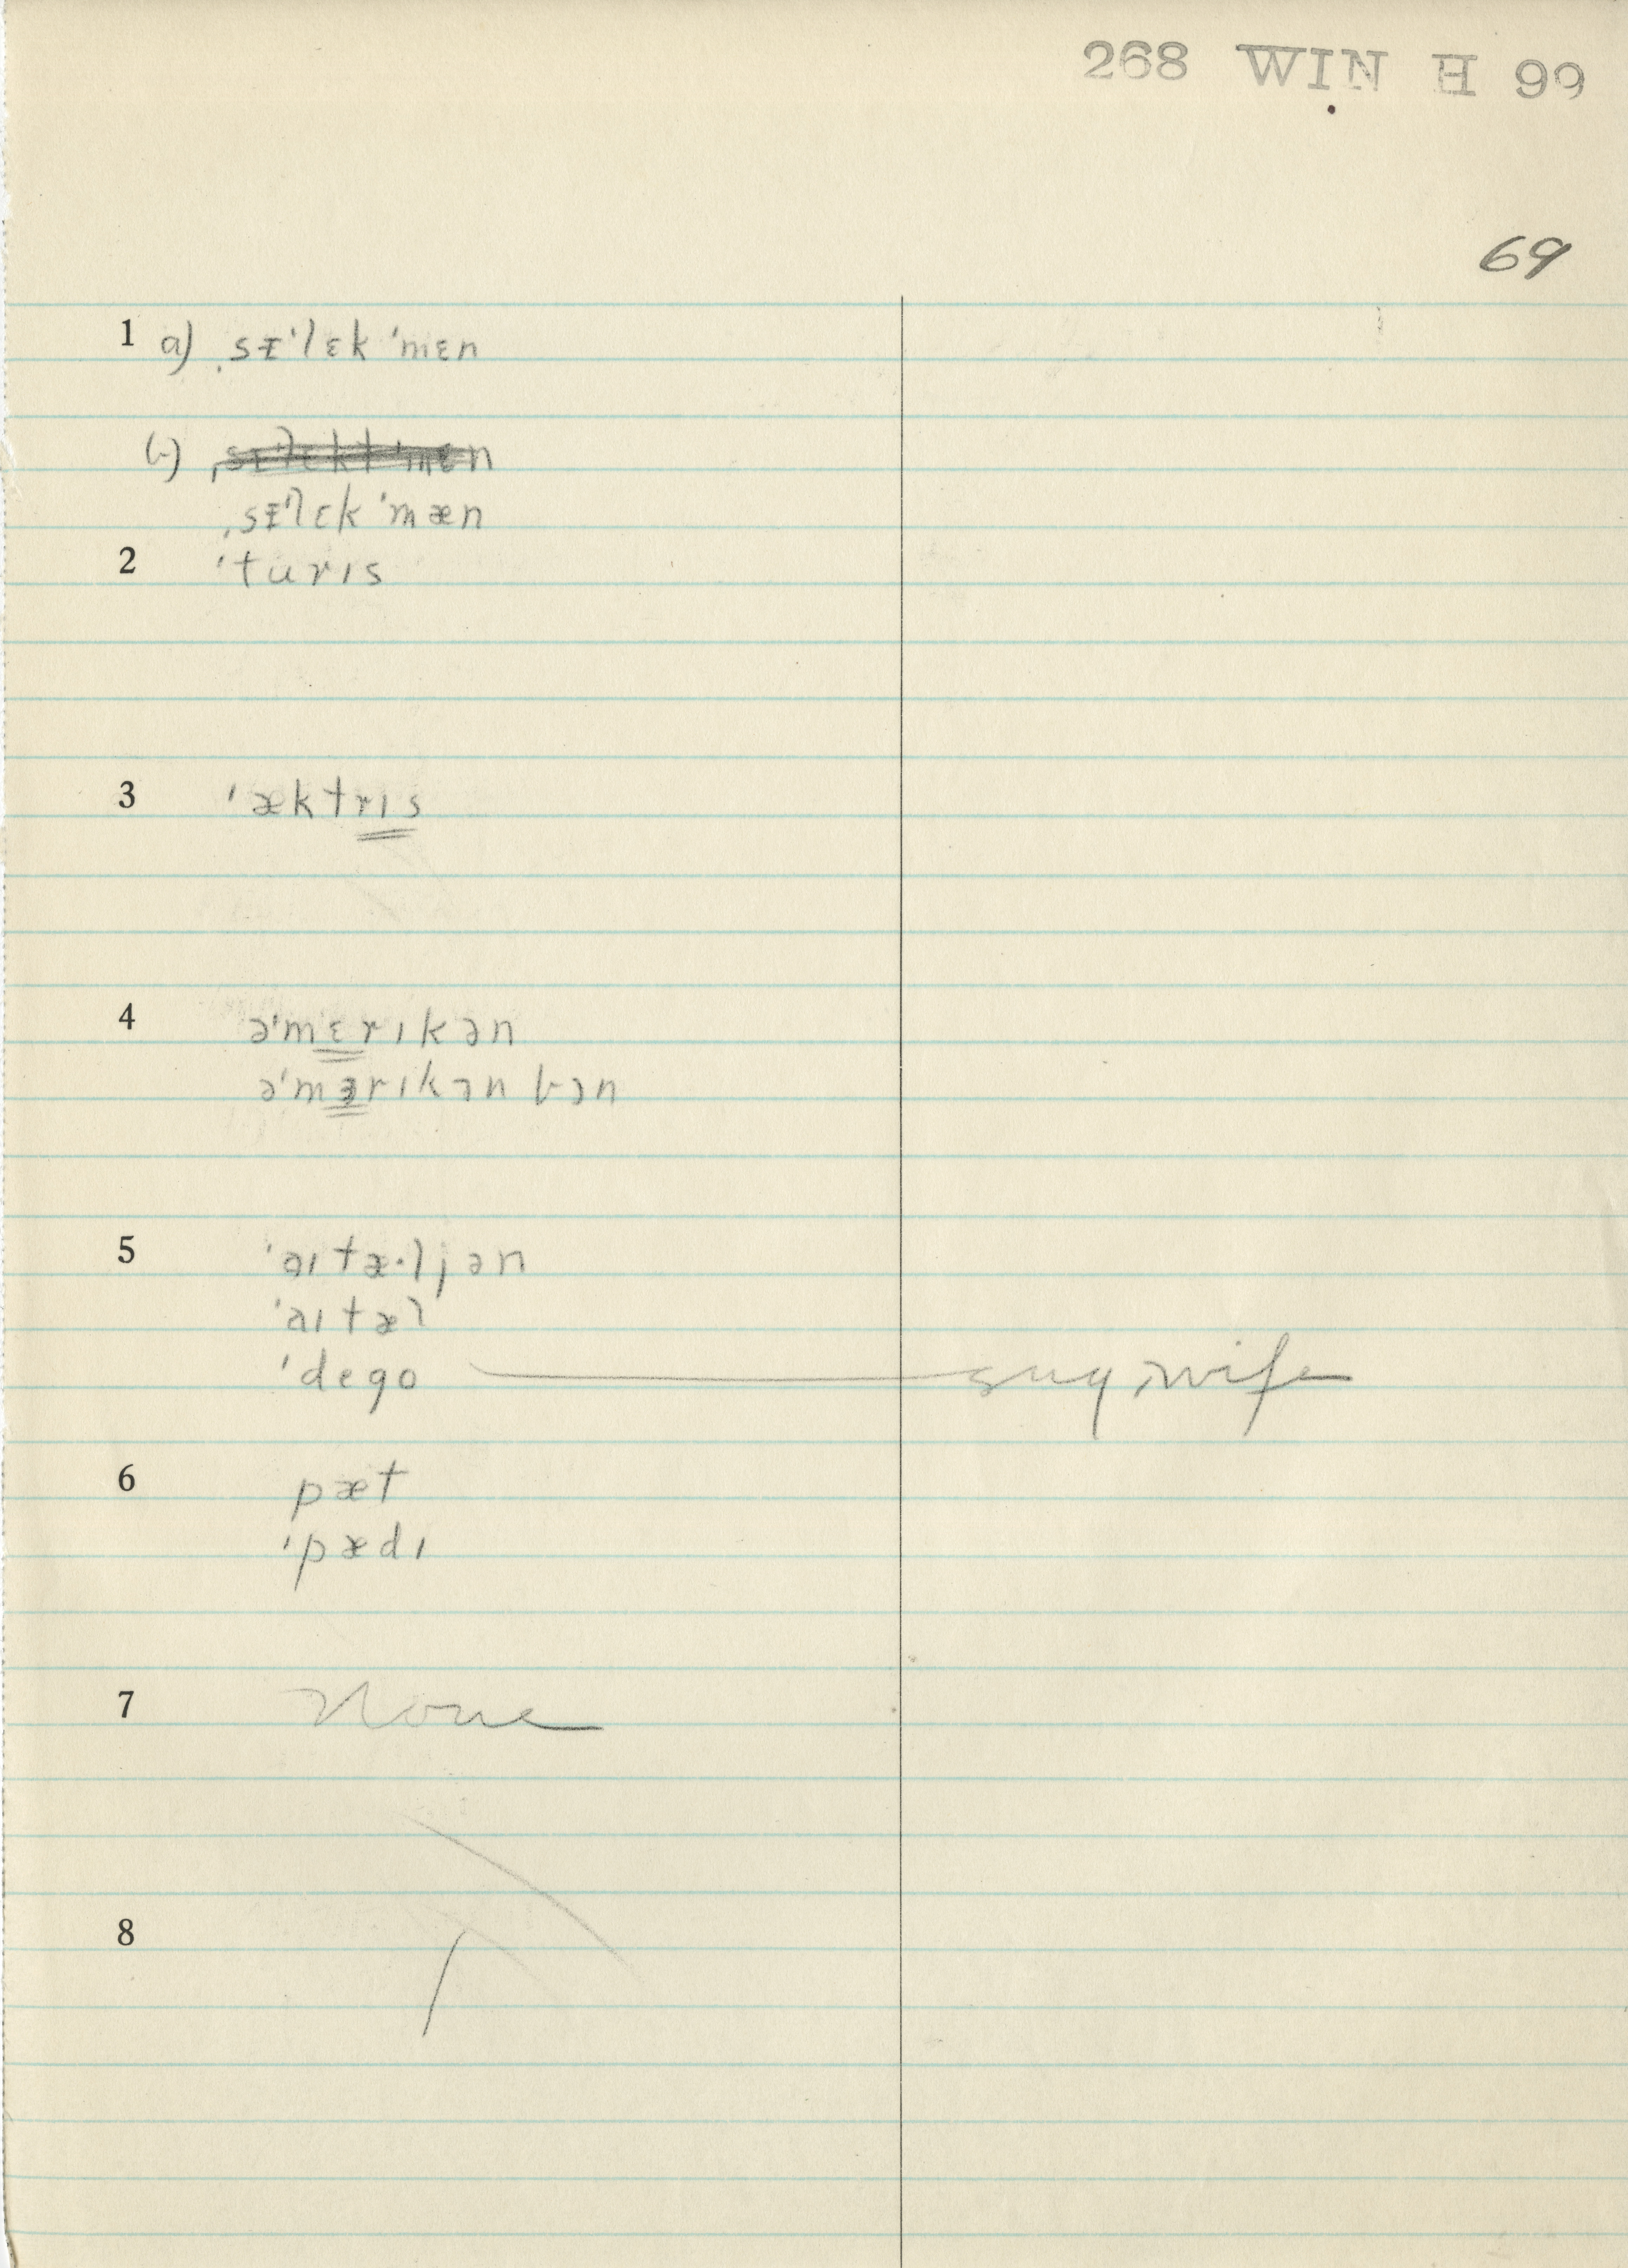 268 WIN H 99
69
1 a) ˌsᵻˈlɛkˈmɛn
b) ˌsᵻˈlɛktˈmɛn
ˌsᵻˈlɛkˈmæn
2 ˈturɪs
3 ˈæktrɪs
4 əˈmɛrɪkən
əˈmɜrɪkən bɔn
5 ˈaɪtæ·ljən
ˈaɪtæl
ˈdego guy, wife
6 pæt
ˈpædɪ
7 None
8